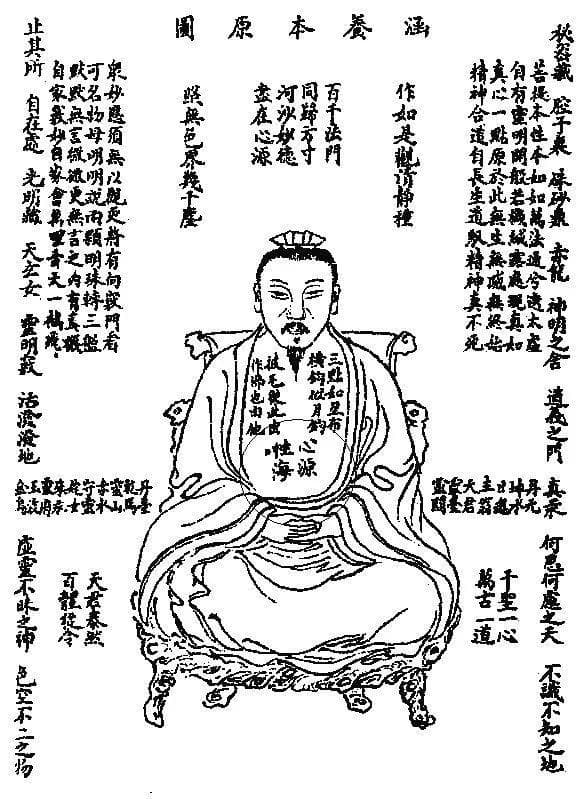 涵養本原圖
祕密藏 腔子裏 硃砂鼎 赤龍 神明之舍 道義之門 真汞 何思何慮之天 不識不知之地
菩提本性本如如萬法通兮透太虛
自有靈明開般若機緘露處現真如
真心一點原於此無生無滅無終始
精神合道自長生道馭精神真不死
作如是觀清靜種
百千法門
同歸方寸
河沙妙德
盡在心源
照無色界幾千塵
衆妙應須無以觀更將有向竅門看
可名物母明明說兩顆明珠轉三盤
默默無言微微更無言之內有真機
自家妙自家會萬里青天一鶴飛
止其所 自在處 光明藏 天玄女 靈明竅 活潑潑地 虛靈不昧之神 色空不二之物
三點如星布
橫鈎似月
披毛從此出
作佛也由他
心源
性海
丹元
日魂
主翁
天君
靈臺
靈關
丹臺
乾馬
靈山
赤水
守靈
姹女
玉液
金烏
千聖一心
萬古一道
天君泰然
百體從令